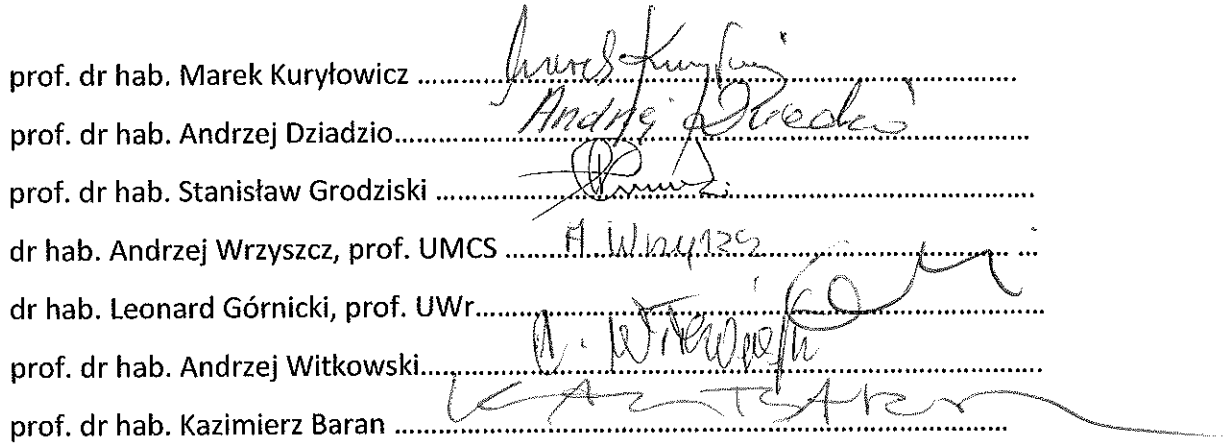 prof. dr hab. Marek Kuryłowicz ........................................ Marek Kuryłowicz
prof. dr hab. Andrzej Dziadzio........................................ Andrzej Dziadzio
prof. dr hab. Stanisław Grodziski ........................................
dr hab. Andrzej Wrzyszcz, prof. UMCS ........................................ A. Wrzyszcz
dr hab. Leonard Górnicki, prof. UWr........................................
prof. dr hab. Andrzej Witkowski........................................ A. Witkowski
prof. dr hab. Kazimierz Baran ........................................